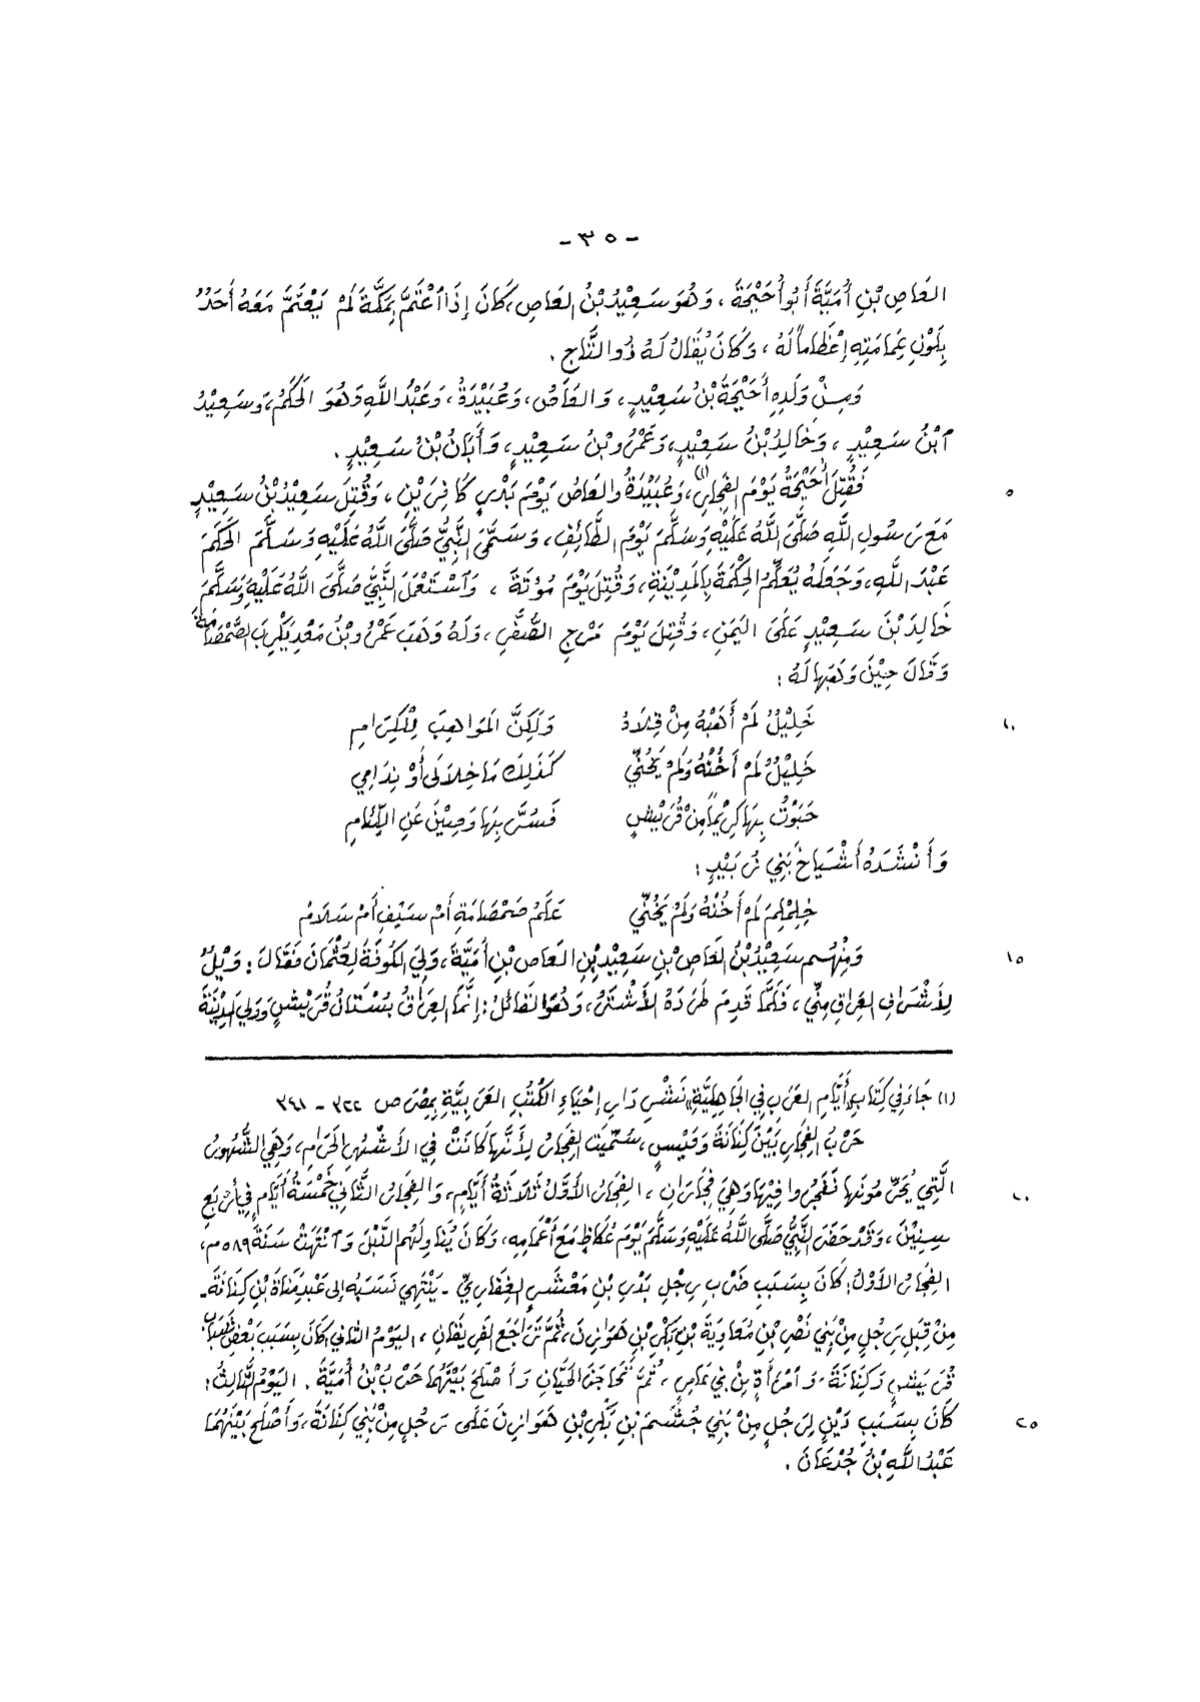 - ٣٥ -
العَاصِ بْنِ أُمَيَّةَ أَبُو أُحَيْحَةَ ، وَهُوَ سَعِيْدُ بْنُ العَاصِ، كَانَ إِذَا ٱعْتَمَّ بِمَكَّةَ لَمْ يَعْتَمَّ مَعَهُ أَحَدٌ
بِلَوْنِ عِمَامَتِهِ إِعْظَاماً لَهُ ، وَكَانَ يُقَالُ لَهُ ذُو التَّاجِ .
وَمِنْ وَلَدِهِ أُحَيْحَةُ بْنُ سَعِيْدٍ ، وَالعَاصُ ، وَعُبَيْدَةُ ، وَعَبْدُ اللَّهِ وَهُوَ الحَكَمُ، وَسَعِيْدُ
ٱبْنُ سَعِيْدٍ ، وَخَالِدُ بْنُ سَعِيْدٍ، وَعَمْرُو بْنُ سَعِيْدٍ، وَأَبَانُ بْنُ سَعِيْدٍ .
فَقُتِلَ أُحَيْحَةُ يَوْمَ الفِجَارِ(١)، وَعُبَيْدَةُ والعَاصُ يَوْمَ بَدْرٍ كَافِرَيْنِ ، وَقُتِلَ سَعِيْدُ بْنُ سَعِيْدٍ ٥
مَعَ رَسُولِ اللَّهِ صَلَّى اللَّهُ عَلَيْهِ وَسَلَّمَ يَوْمَ الطَّائِفِ ، وَسَمَّى النَّبِيُّ صَلَّى اللَّهُ عَلَيْهِ وَسَلَّمَ الحَكَمَ
عَبْدَ اللَّهِ، وَجَعَلَهُ يُعَلِّمُ الحِكْمَةَ بِالمَدِيْنَةِ ، وَقُتِلَ يَوْمَ مُؤْتَةَ ، وَٱسْتَعْمَلَ النَّبِيُّ صَلَّى اللَّهُ عَلَيْهِ وَسَلَّمَ
خَالِدَ بْنَ سَعِيْدٍ عَلَى اليَمَنِ ، وَقُتِلَ يَوْمَ مَرْجِ الصُّفَّرِ ، وَلَهُ وَهَبَ عَمْرُو بْنُ مَعْدِيْكَرِبَ الصَّمْصَامَةَ
وَقَالَ حِيْنَ وَهَبَهَا لَهُ :
خَلِيْلٌ لَمْ أَهَبْهُ مِنْ قِلَاهُ وَلَكِنَّ المَوَاهِبَ لِلْكِرَامِ ١٠
خَلِيْلٌ لَمْ أَخُنْهُ وَلَمْ يَخُنِّي كَذَلِكَ مَا خِلَالِي أَوْ نِدَامِي
حَبَوْتُ بِهَا كَرِيْماً مِنْ قُرَيْشٍ فَسُرَّ بِهَا وَصِيْنَ عَنِ اللِّئَامِ
وَأَنْشَدَهُ أَشْيَاخُ بَنِي زُبَيْدٍ :
خِلِمْلِمَ لَمْ أَخُنْهُ وَلَمْ يَخُنِّي عَلَمُ صَمْصَامَةِ أَمْ سَيْفِ أَمْ سَلَامُ
وَمِنْهُم سَعِيْدُ بْنُ العَاصِ بْنِ سَعِيْدِ بْنِ العَاصِ بْنِ أُمَيَّةَ، وَلِيَ الكُوفَةَ لِعُثْمَانَ فَقَالَ : وَيْلٌ ١٥
لِأَشْرَافِ العِرَاقِ مِنِّي ، فَلَمَّا قَدِمَ طَرَدَهُ الأَشْتَرُ، وَهُوَ القَائِلُ: إِنَّمَا العِرَاقُ بُسْتَانُ قُرَيْشٍ وَوَلِيَ المَدِيْنَةَ
(١) جَاءَ فِي كِتَابِ أَيَّامِ العَرَبِ فِي الجَاهِلِيَّةِ نَشْرِ دَارِ إِحْيَاءِ الكُتُبِ العَرَبِيَّةِ بِمِصْرَ ص ٣٢٢ - ٣٤١
حَرْبُ الفِجَارِ بَيْنَ كِنَانَةَ وَقَيْسٍ ، سُمِّيَتْ الفِجَارُ لِأَنَّهَا كَانَتْ فِي الأَشْهُرِ الحَرَامِ، وَهِيَ الشُّهُورُ
الَّتِي يُحَرِّمُونَهَا فَفَجَرُوا فِيْهَا وَهِيَ فِجَارَانِ ، الفِجَارُ الأَوَّلُ ثَلَاثَةُ أَيَّامٍ، وَالفِجَارُ الثَّانِي خَمْسَةُ أَيَّامٍ فِي أَرْبَعِ ٢٠
سِنِيْنَ ، وَقَدْ حَضَرَ النَّبِيُّ صَلَّى اللَّهُ عَلَيْهِ وَسَلَّمَ يَوْمَ عُكَاظٍ مَعَ أَعْمَامِهِ، وَكَانَ يُنَاوِلُهُم النَّبْلَ وَٱنْتَهَتْ سَنَةَ ٥٨٩م،
الفِجَارُ الأَوَّلُ: كَانَ بِسَبَبِ ضَرْبِ رِجْلِ بَدْرِ بْنِ مَعْشَرٍ الغِفَارِيِّ - يَنْتَهِي نَسَبُهُ إِلى عَبْدِ مَنَاةَ بْنِ كِنَانَةَ -
مِنْ قِبَلِ رَجُلٍ مِنْ بَنِي نَصْرِ بْنِ مُعَاوِيَةَ بْنِ بَكْرِ بْنِ هَوَازِنَ، ثُمَّ تَرَاجَعَ الفَرِيقَانِ ، اليَوْمُ الثَّانِي كَانَ بِسَبَبِ بَعْضِ شَبَابِ
قُرَيْشٍ وَكِنَانَةَ وَٱمْرَأَةٍ مِنْ بَنِي عَامِرٍ ، ثُمَّ تَحَاجَزَ الحَيَّانِ وَأَصْلَحَ بَيْنَهُمَا حَرْبُ بْنُ أُمَيَّةَ . اليَوْمُ الثَّالِثُ:
كَانَ بِسَبَبِ دَيْنٍ لِرَجُلٍ مِنْ بَنِي جُشَمَ بْنِ بَكْرِ بْنِ هَوَازِنَ عَلَى رَجُلٍ مِنْ بَنِي كِنَانَةَ، وَأَصْلَحَ بَيْنَهُمَا ٢٥
عَبْدُ اللَّهِ بْنُ جُدْعَانَ .